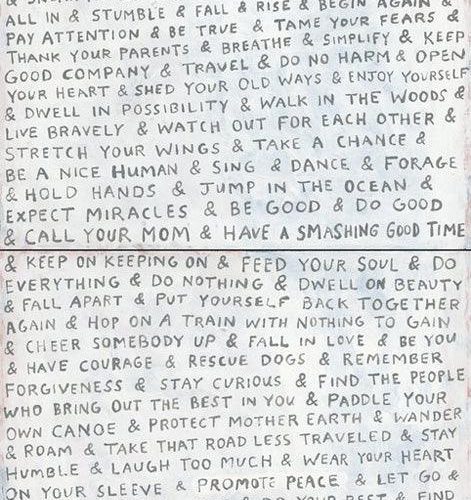 ALL IN & STUMBLE & FALL & RISE & BEGIN AGAIN &
PAY ATTENTION & BE TRUE & TAME YOUR FEARS &
THANK YOUR PARENTS & BREATHE & SIMPLIFY & KEEP
GOOD COMPANY & TRAVEL & DO NO HARM & OPEN
YOUR HEART & SHED YOUR OLD WAYS & ENJOY YOURSELF
& DWELL IN POSSIBILITY & WALK IN THE WOODS &
LIVE BRAVELY & WATCH OUT FOR EACH OTHER &
STRETCH YOUR WINGS & TAKE A CHANCE &
BE A NICE HUMAN & SING & DANCE & FORAGE
& HOLD HANDS & JUMP IN THE OCEAN &
EXPECT MIRACLES & BE GOOD & DO GOOD
& CALL YOUR MOM & HAVE A SMASHING GOOD TIME
& KEEP ON KEEPING ON & FEED YOUR SOUL & DO
EVERYTHING & DO NOTHING & DWELL ON BEAUTY
& FALL APART & PUT YOURSELF BACK TOGETHER
AGAIN & HOP ON A TRAIN WITH NOTHING TO GAIN
& CHEER SOMEBODY UP & FALL IN LOVE & BE YOU
& HAVE COURAGE & RESCUE DOGS & REMEMBER
FORGIVENESS & STAY CURIOUS & FIND THE PEOPLE
WHO BRING OUT THE BEST IN YOU & PADDLE YOUR
OWN CANOE & PROTECT MOTHER EARTH & WANDER
& ROAM & TAKE THAT ROAD LESS TRAVELED & STAY
HUMBLE & LAUGH TOO MUCH & WEAR YOUR HEART
ON YOUR SLEEVE & PROMOTE PEACE & LET GO &
& DO YOUR BEST & FIND